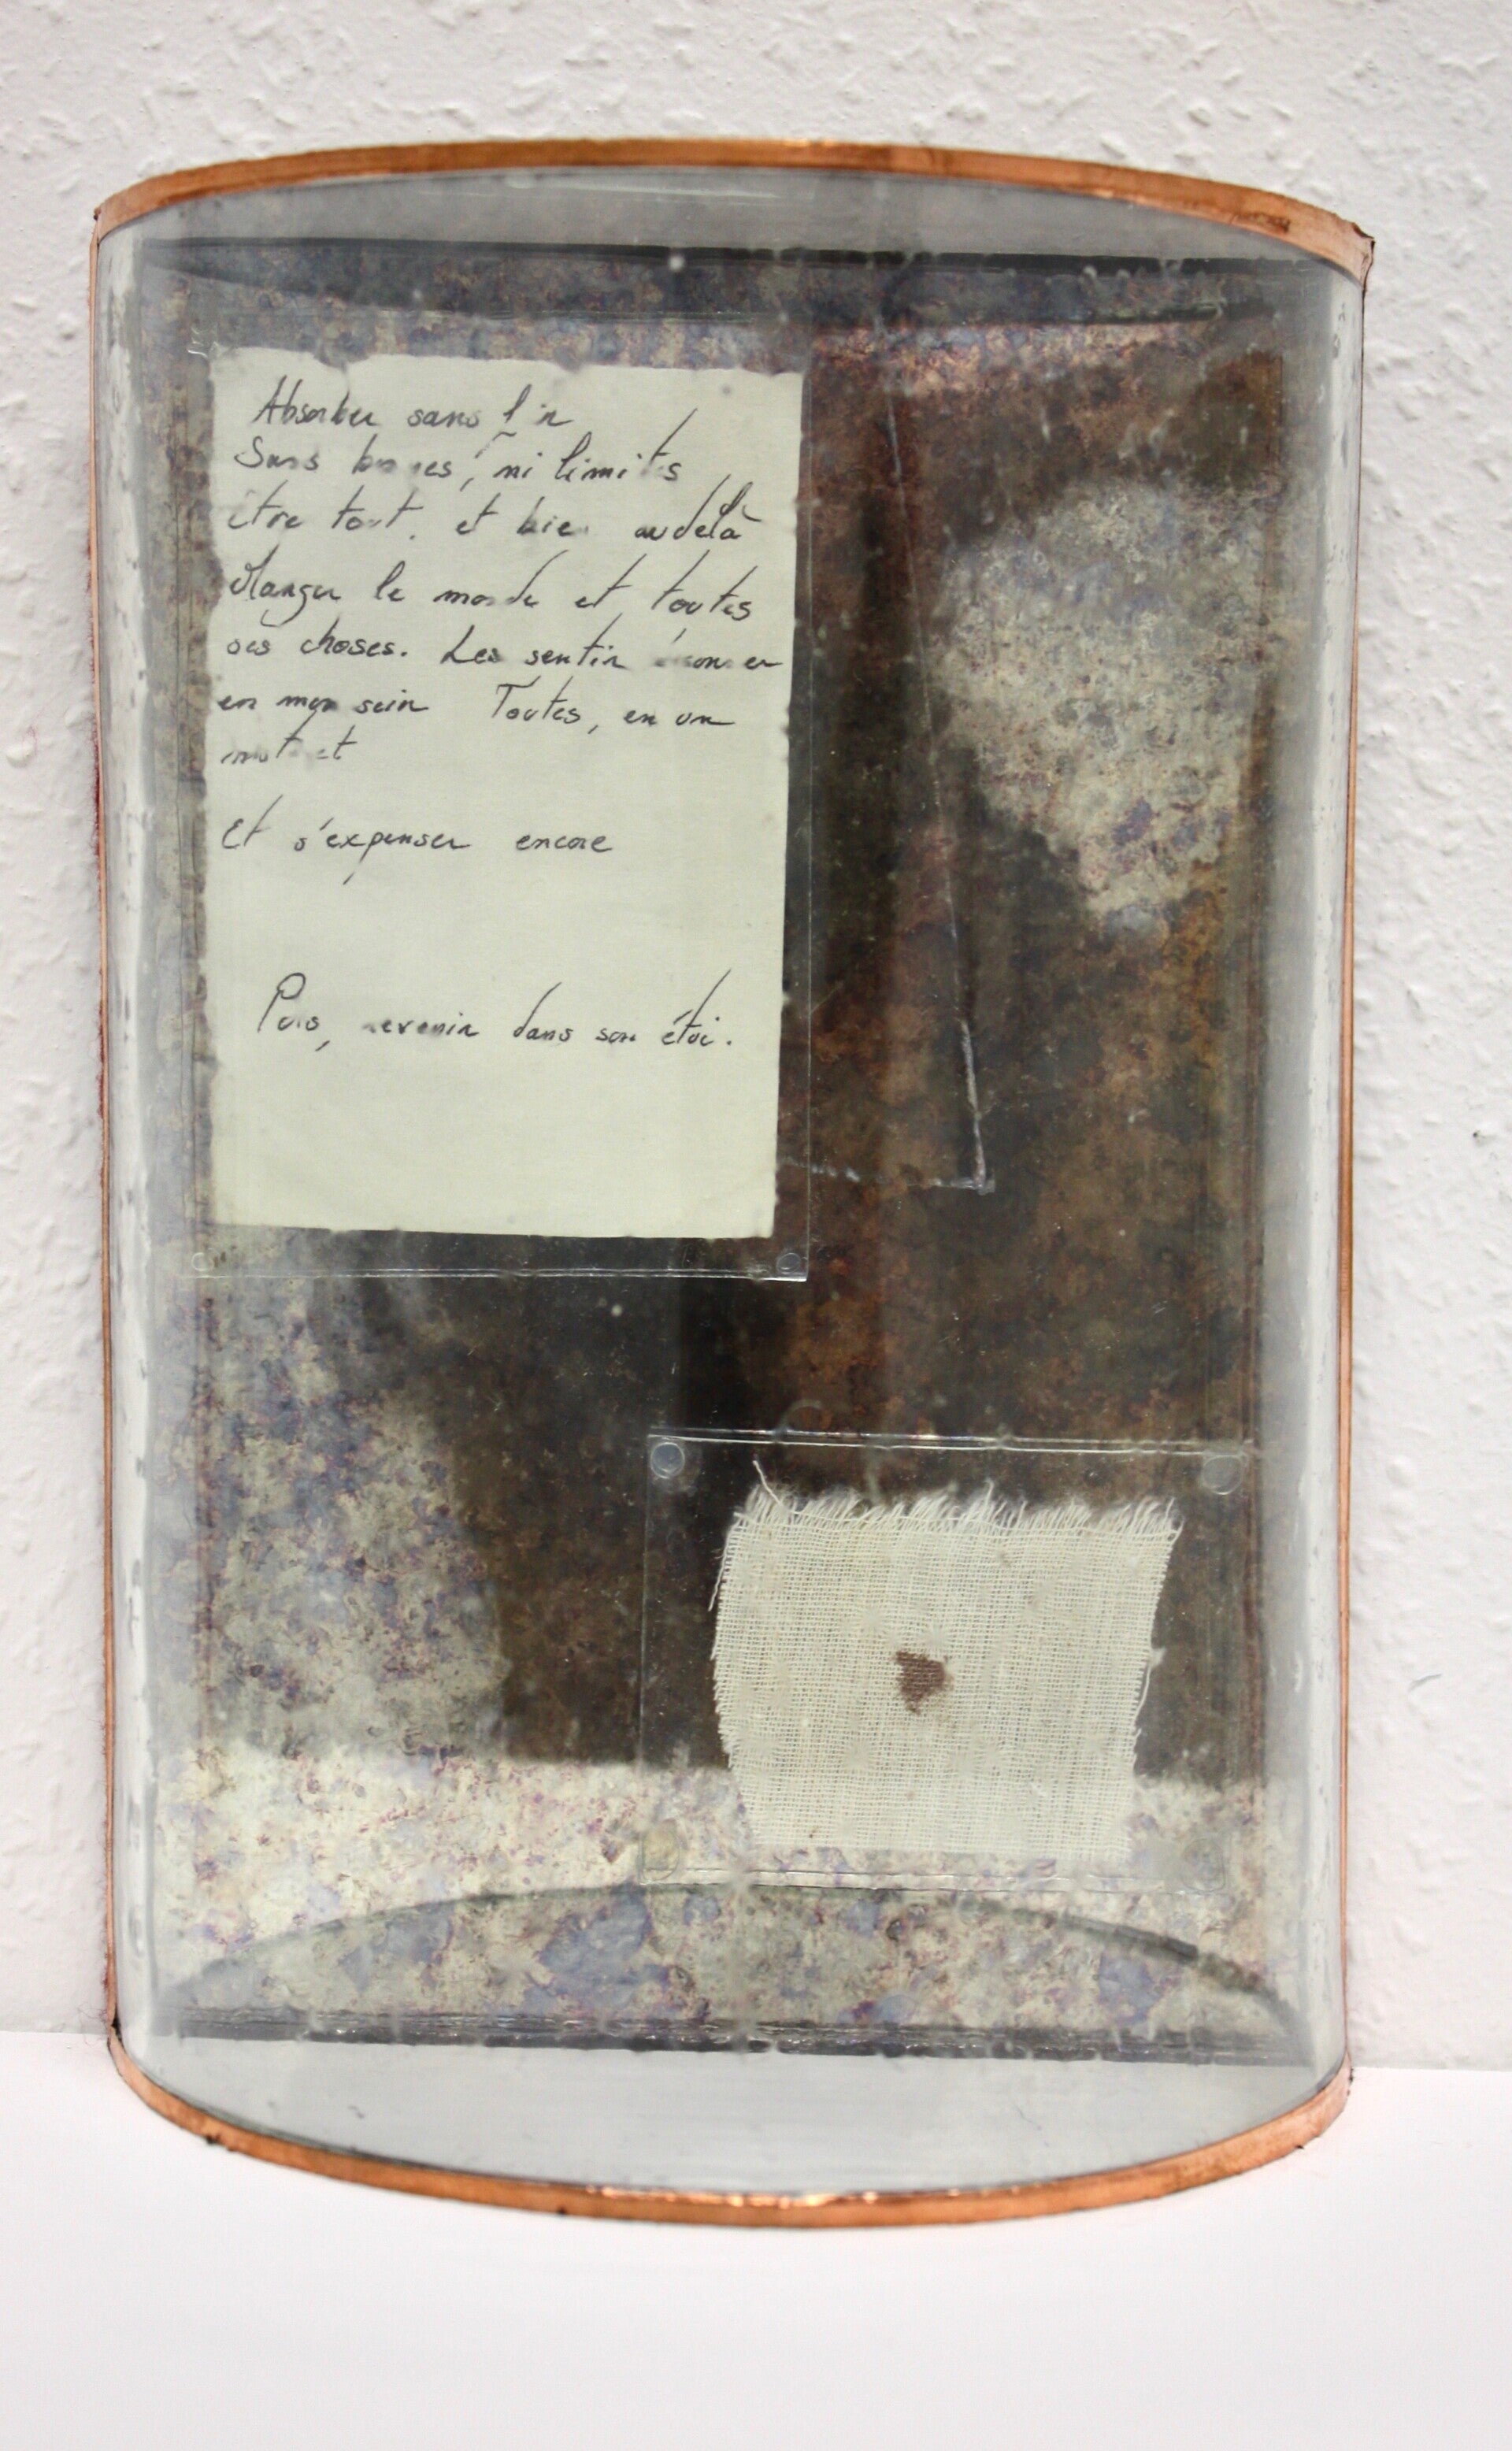 Absorber sans fin
Sans bornes, ni limites
être tout. et bien au delà
Manger le monde et toutes
ses choses. Les sentir
en mon sein Toutes, en un
instant
Et s'expenser encore
Puis, revenir dans son étui.